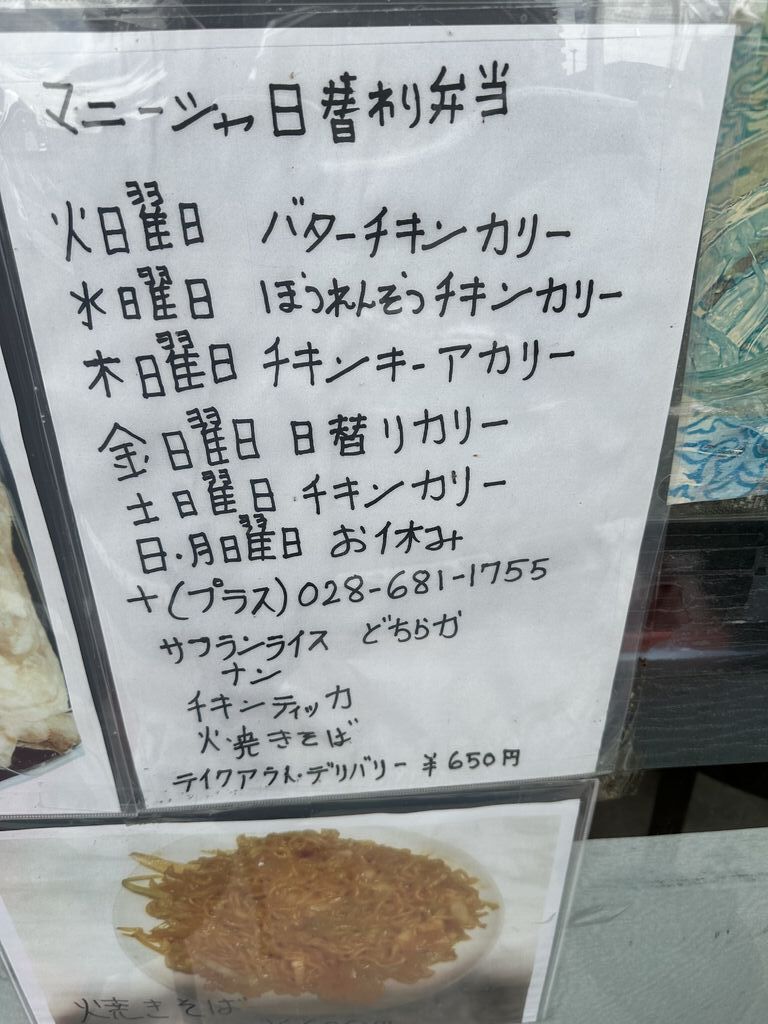 マニーシャ日替わり弁当
火曜日 バターチキンカリー
水曜日 ほうれんそうチキンカリー
木曜日 チキンキーアカリー
金曜日 日替リカリー
土曜日 チキンカリー
日・月曜日 お休み
+(プラス)028-681-1755
サフランライス どちらか
ナン
チキンティッカ
火焼きそば
テイクアウト・デリバリー ¥650円
火焼きそば